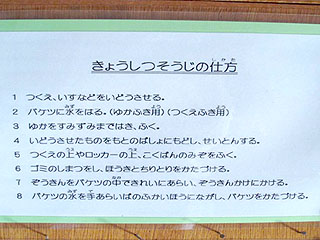 きょうしつそうじの仕方
1 つくえ、いすなどをいどうさせる。
2 バケツに水をはる。(ゆかふき用)(つくえふき用)
3 ゆかをすみずみまではき、ふく。
4 いどうさせたものをもとのばしょにもどし、せいとんする。
5 つくえの上やロッカーの上、こくばんのみぞをふく。
6 ゴミのしまつをし、ほうきとちりとりをかたづける。
7 ぞうきんをバケツの中できれいにあらい、ぞうきんかけにかける。
8 バケツの水を手あらいばのふかいほうにながし、バケツをかたづける。